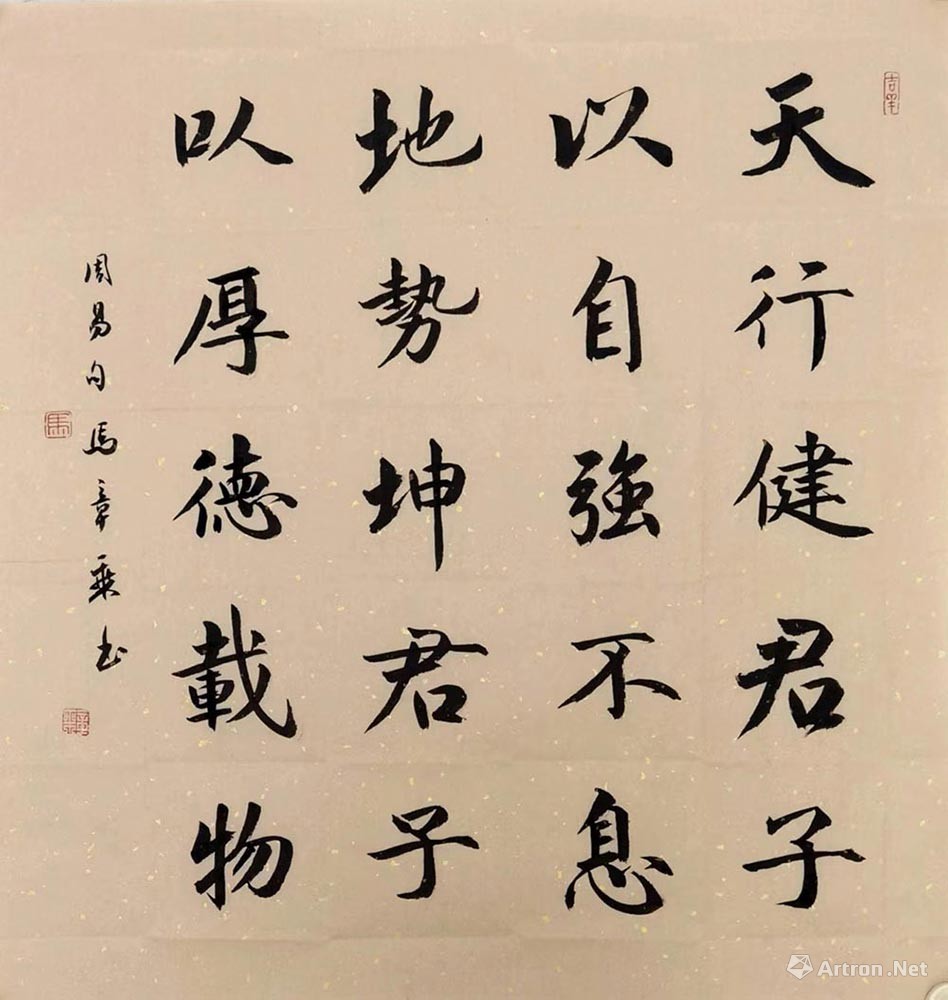 天行健君子
以自強不息
地勢坤君子
以厚德載物
周易句馬章乘书
馬
Artron.Net